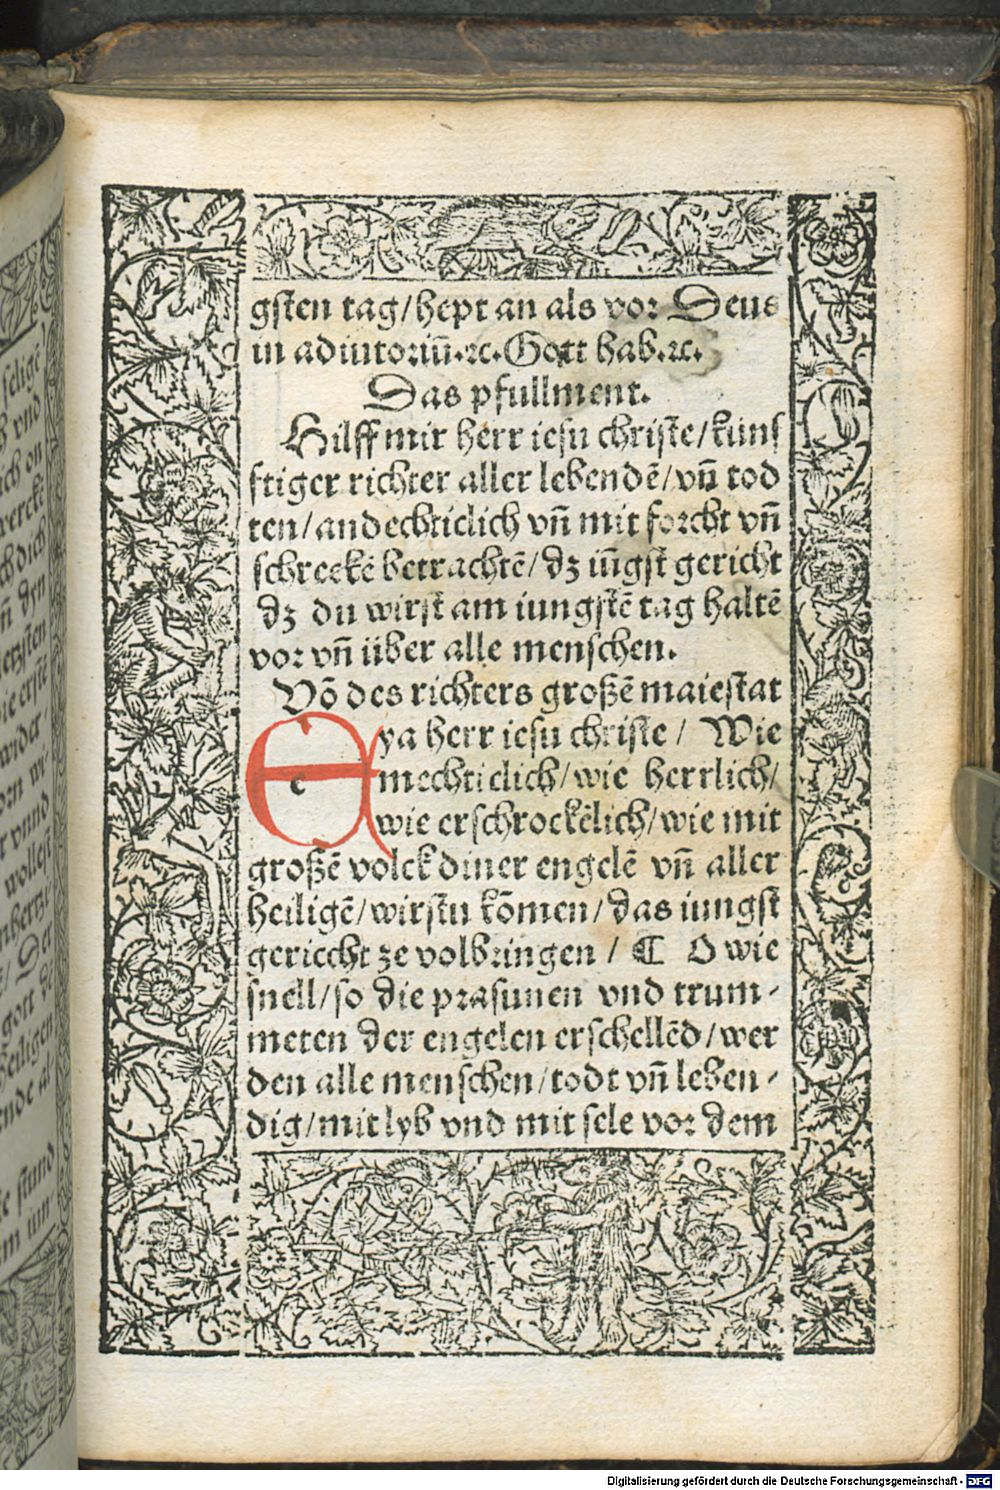 gsten tag/hept an als vor Deus
in adiutoriū.ꝛc. Gott hab.ꝛc.
Das pfullment.
Hilff mir herr iesu christe/kuns
ftiger richter aller lebendē/vn̄ tod
ten/andechticlich vn̄ mit forcht vn̄
schreckē betrachtē/dz iūgst gericht
dz du wirst am iungstē tag haltē
vor vn̄ über alle menschen.
Vō des richters großē maiestat
Eya herr iesu christe / Wie
mechticlich/wie herrlich/
wie erschrockēlich/wie mit
großē volck diner engelē vn̄ aller
heiligē/wirstu kōmen/das iungst
gericcht ze volbringen / ¶ O wie
snell/so die prasunen vnd trum-
meten der engelen erschellēd/wer
den alle menschen/todt vn̄ leben-
dig/mit lyb vnd mit sele vor dem
selige
vnd
ich on
ch dich
vn̄ dyn
letzsten
die erstē
wider
vnnd
wollest
/ Der
gott
heiligen
stund
Digitalisierung gefördert durch die Deutsche Forschungsgemeinschaft - DFG